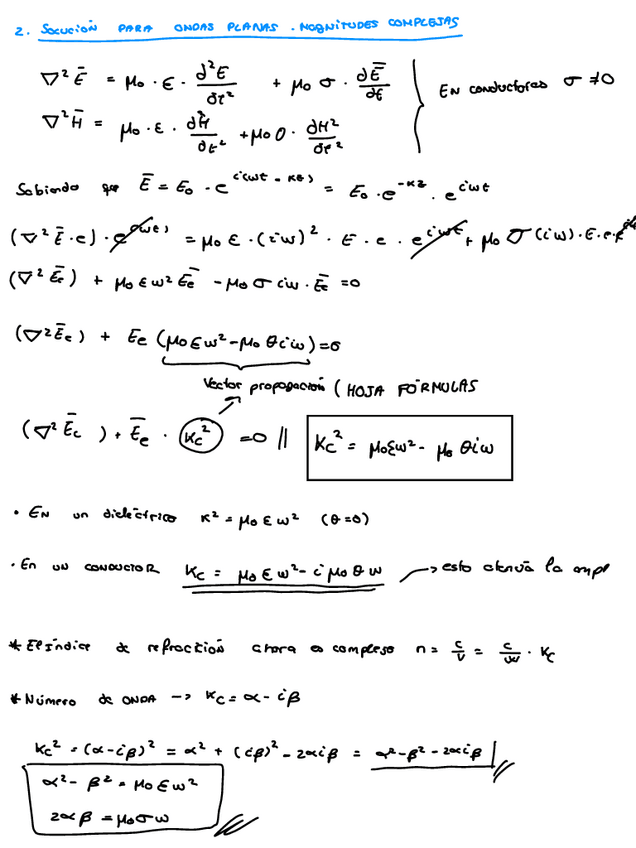 2. SOLUCIÓN PARA ONDAS PLANAS. MAGNITUDES COMPLEJAS
∇² Ē = μ₀ · ε · d²E/∂t² + μ₀ σ · ∂Ē/∂t
∇² H̄ = μ₀ · ε · ∂H̄/∂t² + μ₀ σ · ∂H²/∂t²
EN conductores σ ≠ 0
Sabiendo que Ē = E₀ · e^{i(ωt - kz)} = E₀ · e^{-kz} · e^{iωt}
(∇² Ē · e) · e^{iωt} = μ₀ ε · (iω)² · E · e · e^{iωt} + μ₀ σ (iω) · E · e ·
(∇² Ēc) + μ₀ ε ω² Ēc - μ₀ σ iω · Ēc = 0
(∇² Ēc) + Ēc (μ₀ ε ω² - μ₀ θ iω) = 0
Vector propagación (HOJA FÓRMULAS
(∇² Ēc) + Ēc · (Kc²) = 0 || Kc² = μ₀εω² - μ₀ θiω
• EN un dieléctrico K² = μ₀ ε ω² (θ=0)
• En un CONDUCTOR Kc = μ₀ ε ω² - i μ₀ θ ω → esto atenúa la ampl
* El índice de refracción ahora es complejo n = c/v = c/ω · Kc
* Número de ONDA → Kc = α - iβ
Kc² = (α - iβ)² = α² + (iβ)² - 2αiβ = α² - β² - 2αiβ
α² - β² = μ₀ ε ω²
2αβ = μ₀ σ ω